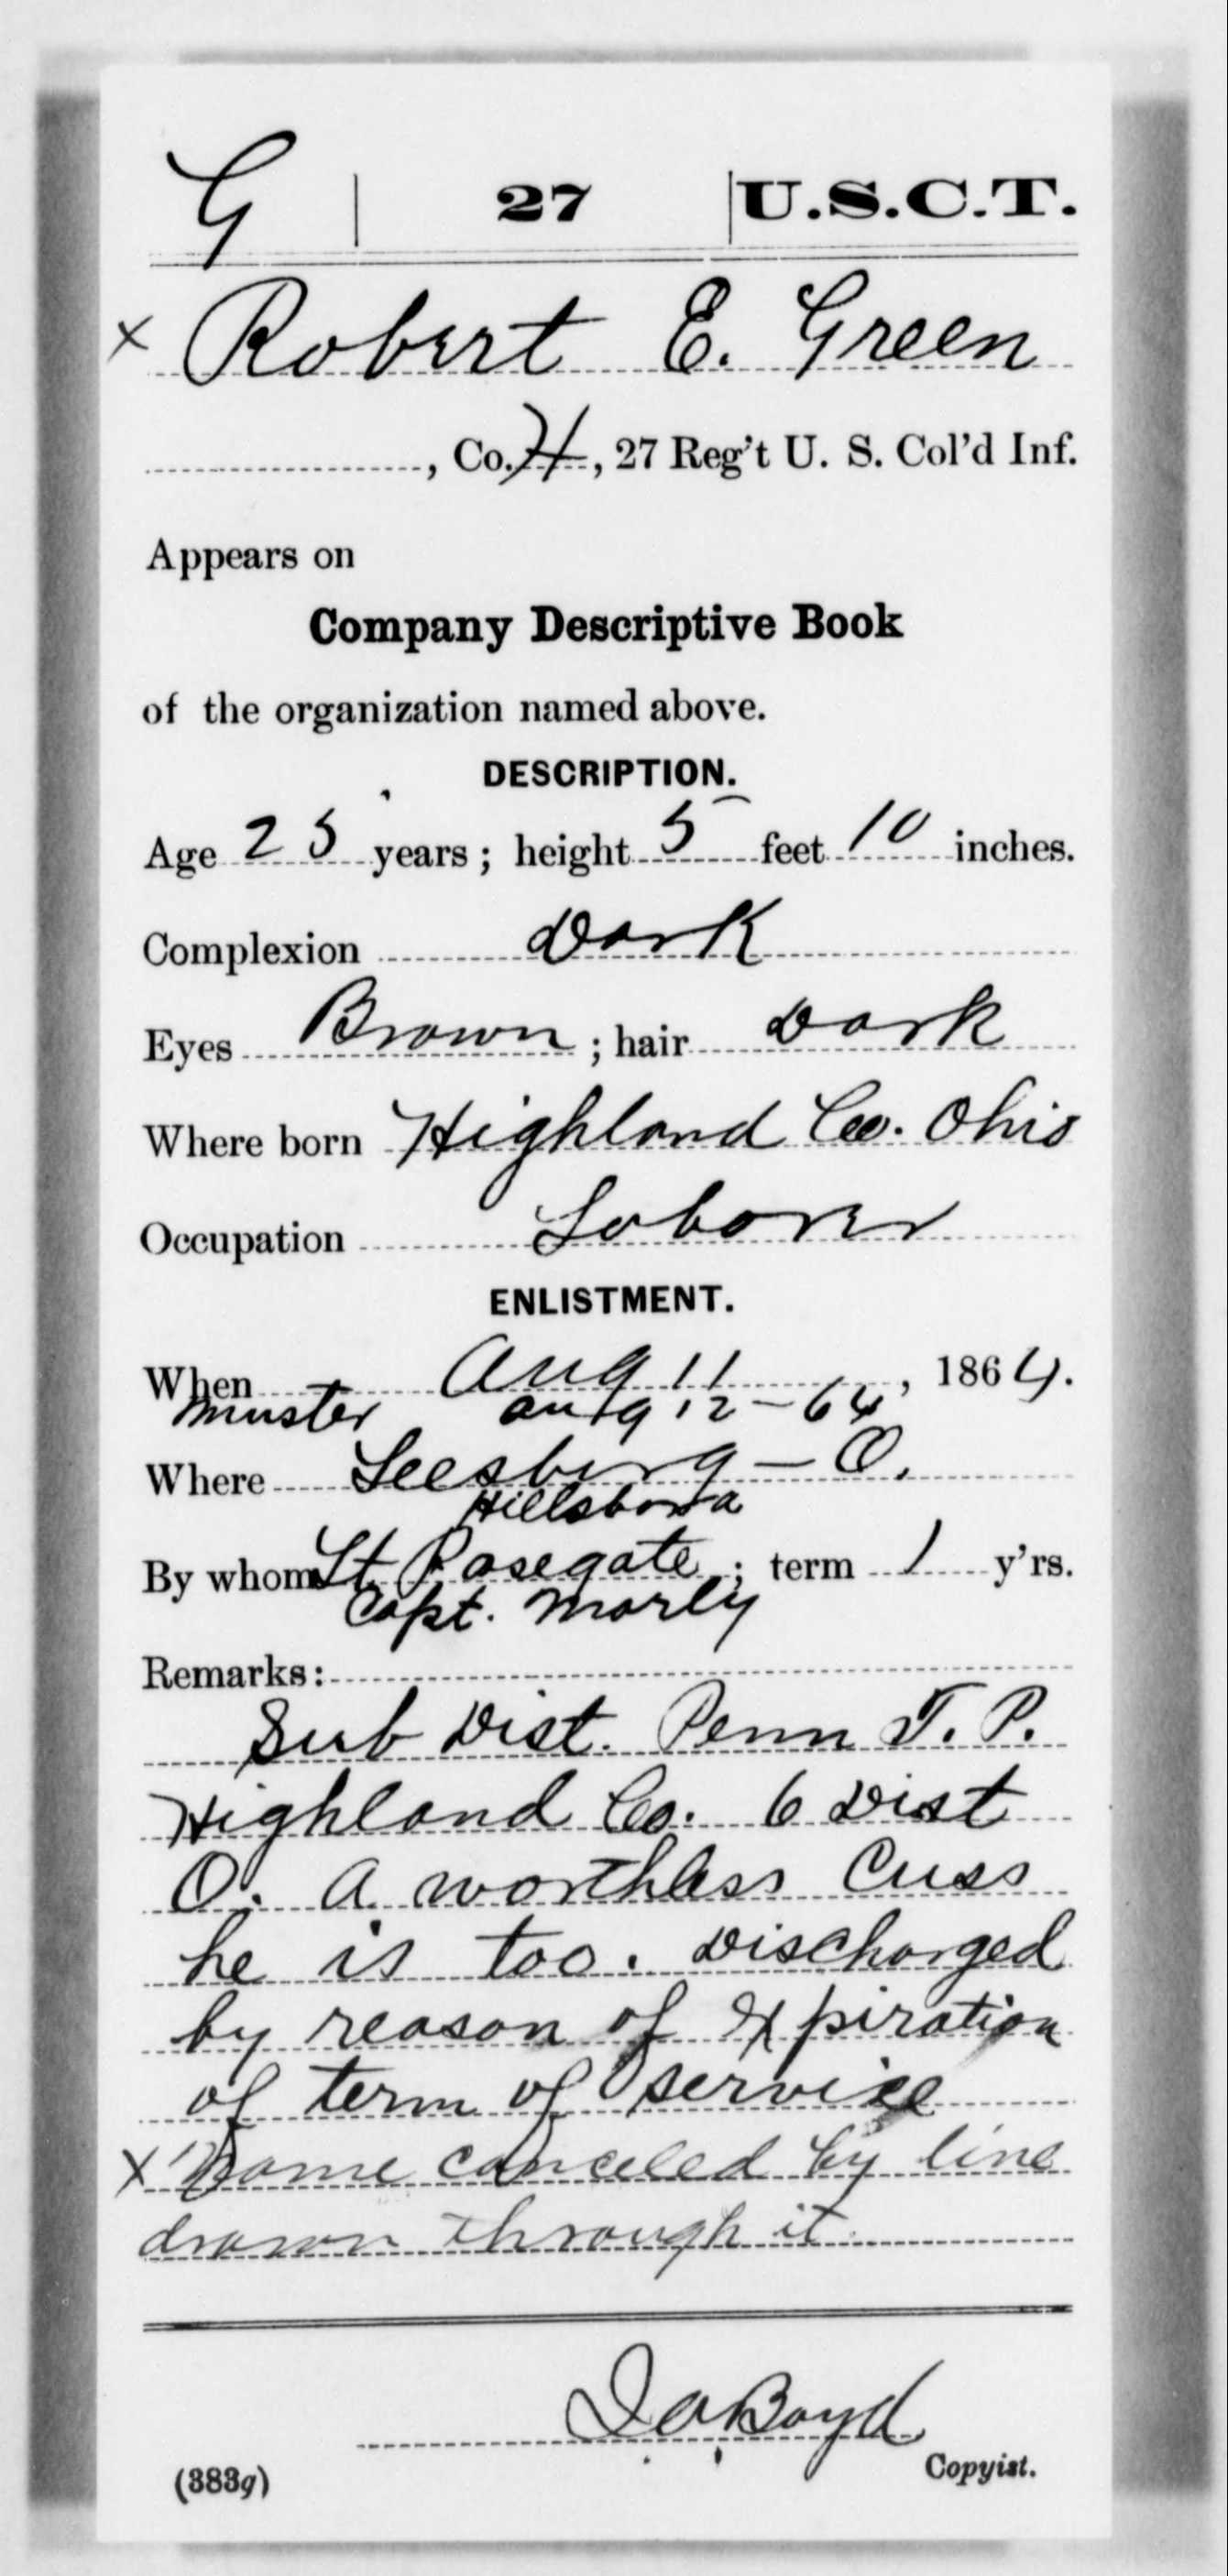 G | 27 | U.S.C.T.
x Robert E. Green
, Co. H, 27 Reg't U. S. Col'd Inf.
Appears on
Company Descriptive Book
of the organization named above.
DESCRIPTION.
Age 25 years; height 5 feet 10 inches.
Complexion Dark
Eyes Brown; hair Dark
Where born Highland Co. Ohio
Occupation Laborer
ENLISTMENT.
When Aug 11, 1864.
Muster Aug 12-64
Where Leesburg - O.
Hillsboro
By whom Lt Rosegate; term 1 y'rs.
Capt. Marly
Remarks:
Sub Dist. Penn T. P.
Highland Co. 6 Dist
O. A worthless Cuss
he is too. Discharged
by reason of Expiration
of term of service
x Name canceled by line
drawn through it.
J A Boyd
Copyist.
(383g)